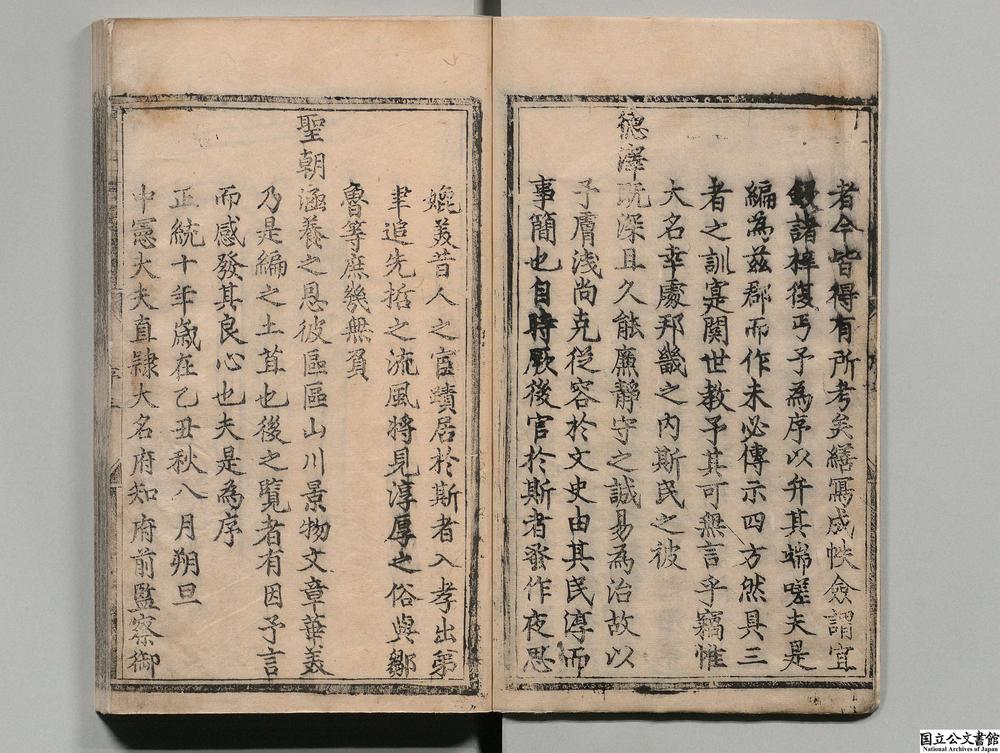 者今皆得有所考矣繕寫成帙僉謂宜
鋟諸梓復丐予為序以弁其端嗟夫是
編為茲郡而作未必傳示四方然具三
者之訓寔関世教予其可無言乎竊惟
大名幸處邦畿之内斯民之被
德澤既深且久能廉靜守之誠易為治故以
予膚淺尚克從容於文史由其民淳而
事簡也自時厥後官於斯者發作夜思
媲美昔人之宦蹟居於斯者入孝出第
聿追先哲之流風將見淳厚之俗與鄒
魯等庶幾無負
聖朝涵養之恩彼區區山川景物文章華美
乃是編之土苴也後之覽者有因予言
而感發其良心也夫是為序
正統十年歲在乙丑秋八月朔旦
中憲大夫直隷大名府知府前監察御
国立公文書館
National Archives of Japan